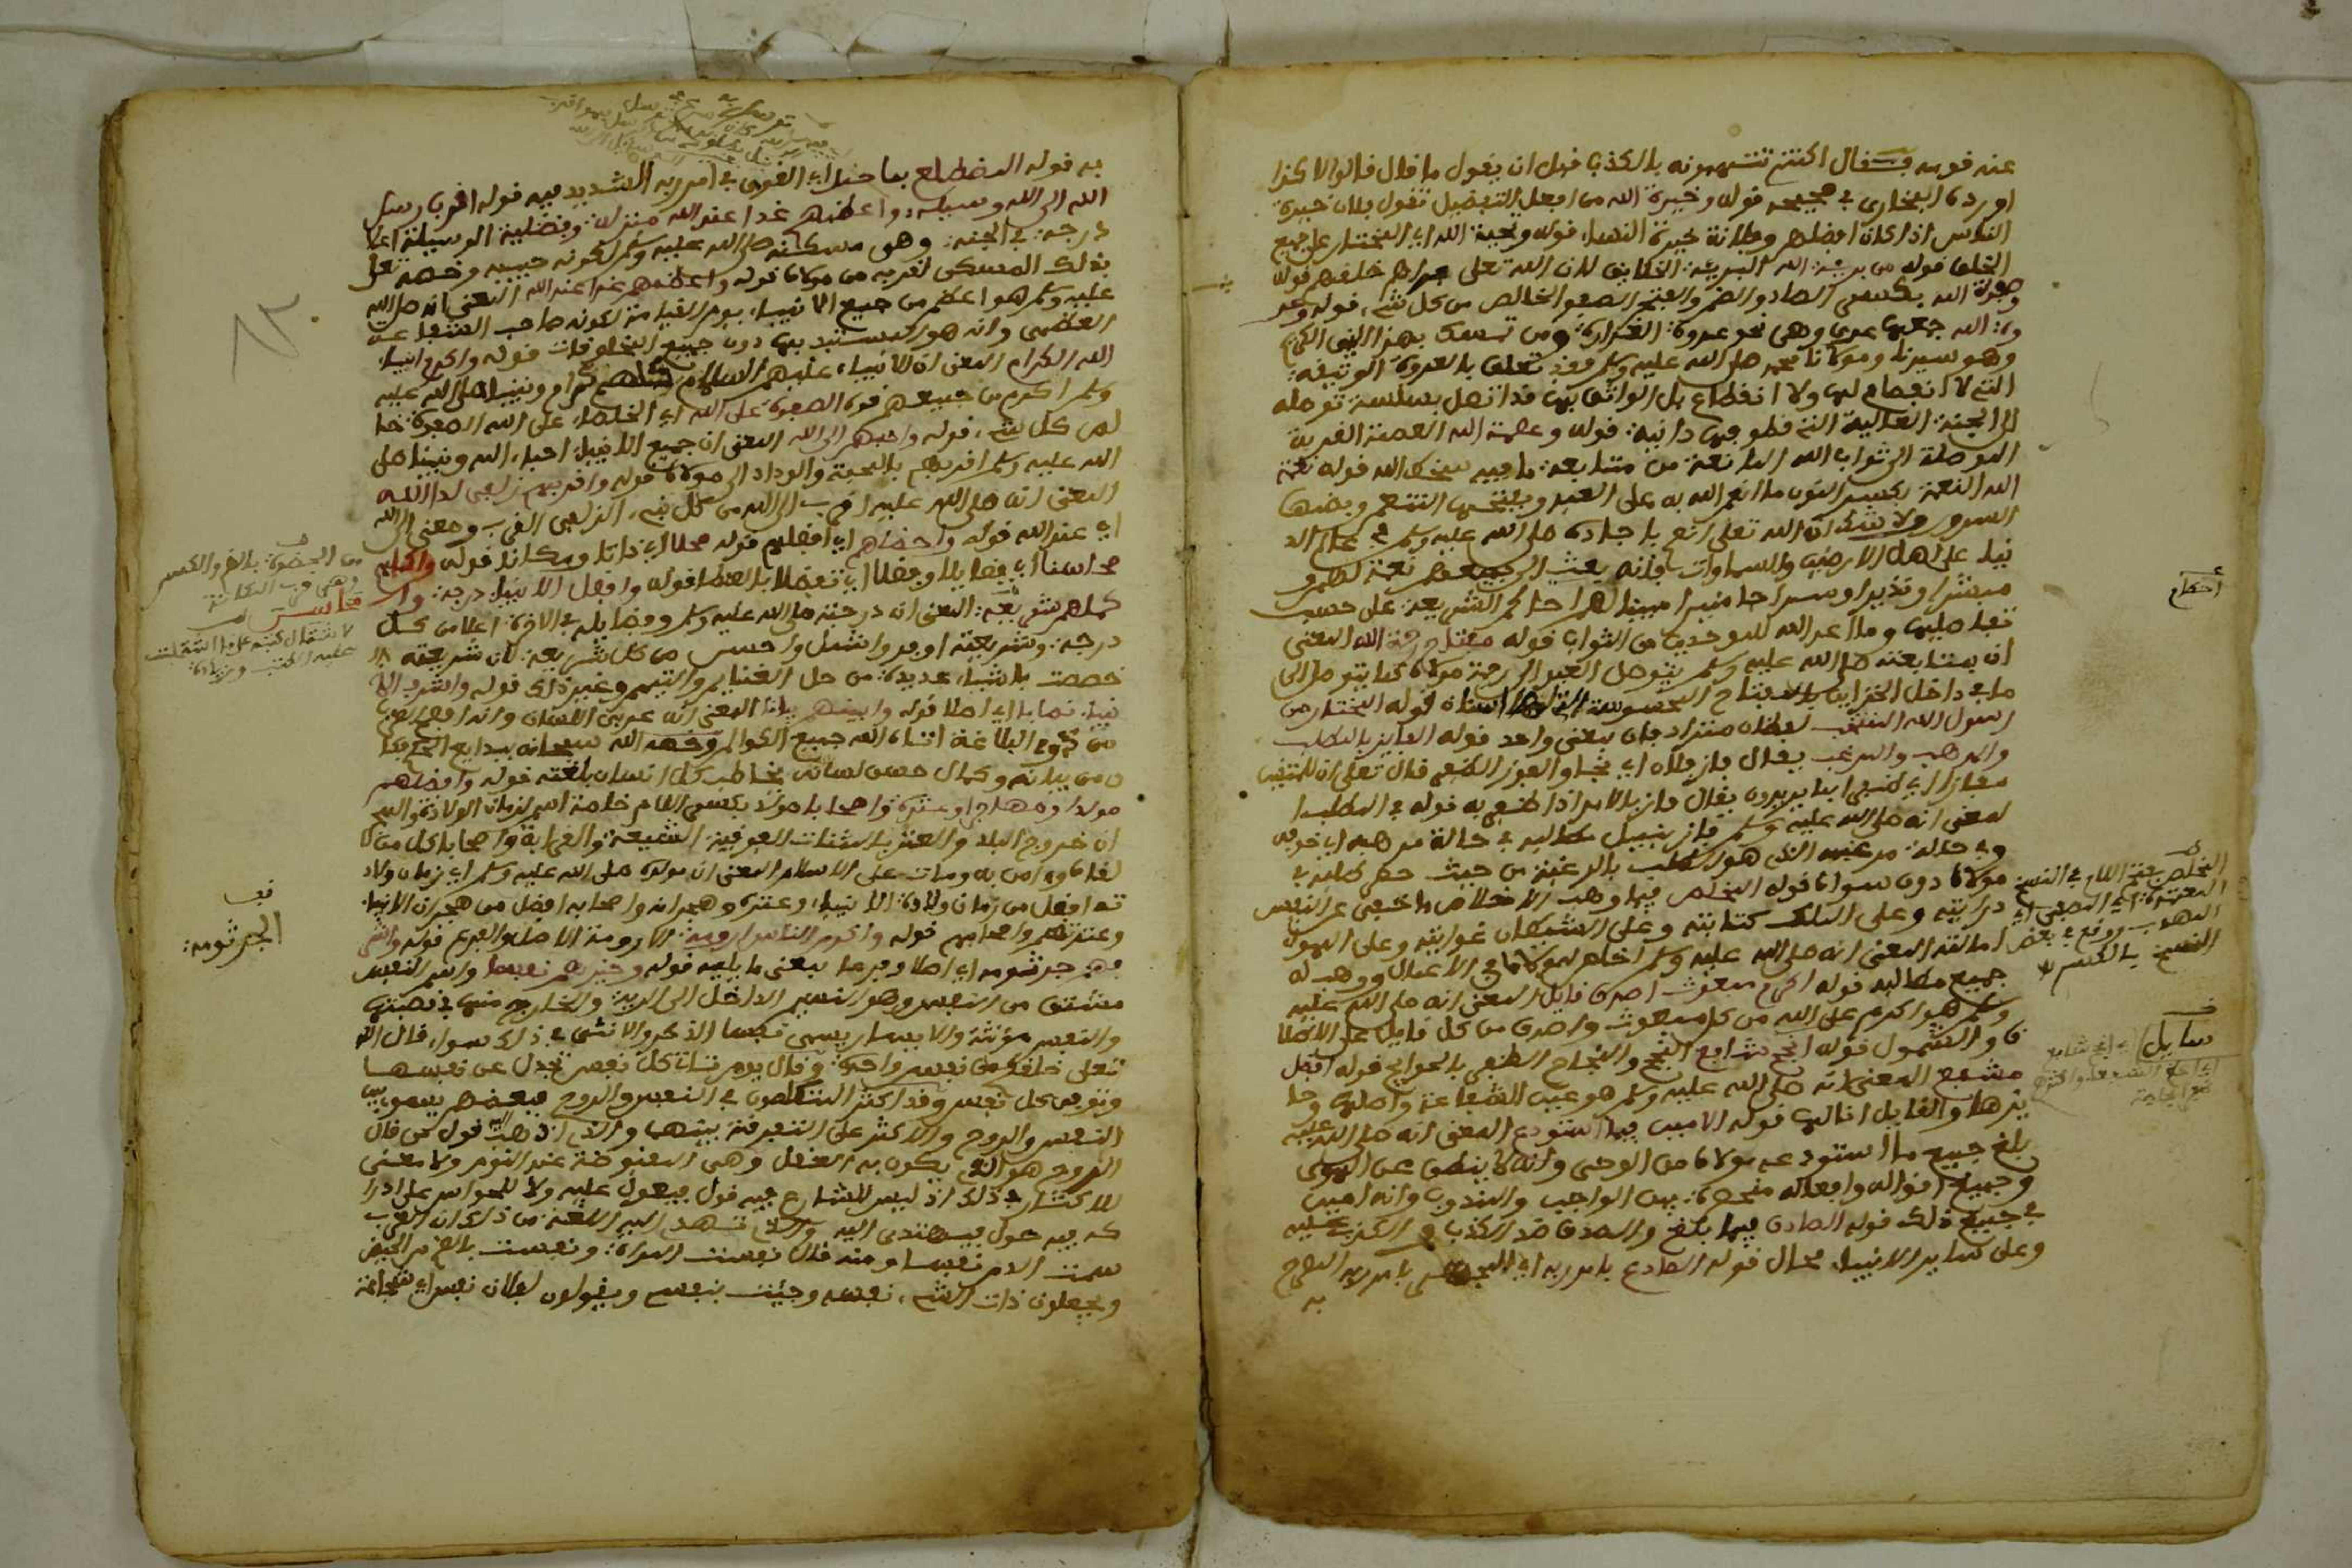 عنه قومه فقال اكنتم تتهمونه بالكذب قبل ان يقول ما قال قالوا لا كذا
اورده البخاري في صحيحه قوله وخيرة الله من افعل التفضيل تقول فلان خيرة
الناس اذا كان افضلهم وفلانة خيرة النساء قوله ونخبة الله اي المختار على جميع
الخلق قوله من بريته الله البرية الخلايق لان الله تعلى براهم خلقهم قوله
وصفوة الله بكسر الصاد والضم والفتح الصفو الخالص من كل شيء قوله وعر
وة الله جمعها عرى وهي نحو عروة الغرارة ومن تمسك بهذا النبي الكريم
وهو سيدنا ومولانا محمد صلى الله عليه وسلم فقد تعلق بالعروة الوثيقة
التي لا انفصام لها ولا انقطاع بل الواثق بها قد اتصل بسلسة توصله
الى الجنة العالية التي قطوفها دانية قوله وعصمة الله العصمة القربة
الموصلة الى ثواب الله المانعة من متابعة ما فيه سخط الله قوله نعمة
الله النعمة بكسر النون ما انعم الله به على العبد وبفتحها التنعم وبضمها
السرور ولا شك ان الله تعلى انعم باجاده صلى الله عليه وسلم في عالم الد
نيا على اهل الارضين والسماوات فانه بعث الى جميعهم نعمة لهم و
مبشرا ونذيرا وسراجا منيرا مبينا لهم احكام الشريعة على حسب
تفاصلها وما اعد الله للموحدين من الثواب قوله مفتاح رحمة الله المعنى
ان بمتابعته صلى الله عليه وسلم يتوصل العبد الى رحمة مولاه كما يتوصل الى
ما في داخل الخزاين بالمفتاح المحسوسة قوله المختار من
رسول الله المنتخب لفظان مترادفان بمعنى واحد قوله الفايز بالمطلب
والمرهب والمرغب يقال فاز فلان اي نجا والفوز الظفر قال تعلى ان للمتقين
مفازا اي ظفرا بما يريدون يقال فاز بالامر اذا ظفر به قوله في المطلب ا
لمعنى انه صلى الله عليه وسلم فاز بنيل مطالبه في حالة مرهبه اي خوفه
وفي حالة مرغبه الذي هو الطلب بالرغبة من حيث حصر طلبه في
مولانا دون سواه قوله المخلص فيما وهب الاخلاص ما خفي عن النفس
درايته وعلى الملك كتابته وعلى الشيطان غوايته وعلى الهوى
امالته المعنى انه صلى الله عليه وسلم اخلص لمولانا في الاعمال ووهب له
جميع مطالبه قوله اكرم مبعوث اصدق قايل المعنى انه صلى الله عليه
وسلم هو اكرم على الله من كل مبعوث واصدق من كل قايل على الاطلا
ق والشمول قوله انجح شافع النجح والنجاح الظفر بالحوايج قوله افضل
مشفع المعنى انه صلى الله عليه وسلم هو عين الشفاعة واصلها وحا
يزها والقايل انا لها قوله الامين فيما استودع المعنى انه صلى الله عليه
بلغ جميع ما استودعه مولانا من الوحي وانه لا ينطق عن الهوى
وجميع اقواله وافعاله منحصرة بين الواجب والمندوب وانه امين
في جميع ذلك قوله الصادق فيما بلغ والصدق ضد الكذب والكذب عليه
وعلى ساير الانبياء محال قوله الصادع بامر ربه اي بامر ربه
به
أحكام
المخلص بفتح اللام في النسخ
النسخ بالكسر
سايل
به قوله المضطلع بما حمل اي القوي في امر ربه الشديد فيه قوله اقرب رسل
الله الى الله وسيلة واعظمهم غدا عند الله منزلة وفضلية الوسيلة اعلا
درجة في الجنة وهي مسكنه صلى الله عليه وسلم لكونه حبيبه وخصه تعلى
بذلك المسكن لقربه من مولانا قوله واعظمهم غدا عند الله المعنى انه صلى الله
عليه وسلم هو اعظم من جميع الانبياء يوم القيامة لكونه صاحب الشفاعة
العظمى وانه هو المستبد بها دون جميع المخلوقات قوله واكرم انبياء
الله الكرام المعنى ان الانبياء عليهم السلام كلهم كرام ونبينا صلى الله عليه
وسلم اكرم من جميعهم قوله الصفوة على الله اي الخلصاء على الله الصفوة خا
لص كل شيء قوله واحبهم الى الله المعنى ان جميع الانبياء احباء الله ونبينا صلى
الله عليه وسلم اقربهم بالمحبة والوداد الى مولانا قوله واقربهم زلفى لدا الله
المعنى انه صلى الله عليه اقرب الى الله من كل نبي الزلفى القرب ومعنى الى الله
اي عند الله قوله واحضاهم اي افضلهم قوله محلا اي ذاتا ومكانا قوله واكملهم
محاسنا اي فضايلا وفضلا اي تفضلا بالعطا قوله وافضل الانبياء درجة وا
كملهم شريعة المعنى ان درجته صلى الله عليه وسلم وفضايله في الاخرة اعلا من كل
درجة وشريعته اوفر واشمل واحسن من كل شريعة لان شريعته
خصصت باشياء عديدة من حل الغنايم والتيمم وغير ذلك قوله واشرف الا
نبياء نصابا اي اصلا قوله وابينهم بيانا المعنى انه عربي اللسان وانه افصح العرب
البلاغة اتاه الله جميع الكوالم وخصه الله سبحانه ببدايع الحكم فكا
ن من بيانه وكمال حسن لسانه يخاطب كل انسان بلغته قوله وافضلهم
مولدا ومهاجرا وعترة واصحابا مولد بكسر اللام خاصة اسم لزمان الولادة
ان خروج البلد والعتر بالمثنات الفوقية الشيعة والصحابة واصحابا كل من
لقاه وامن به ومات على الاسلام المعنى ان مولده صلى الله عليه وسلم اي زمان ولاد
ته افضل من زمان ولادة الانبياء وعترته وهجرانه واصحابه افضل من هجران الانبياء
وعترتهم واصحابهم قوله واكرم الناس ارومة الارومة الاصل والفرع قوله واشر
فهم جرثومة اي اصلا وفرعا بمعنى ما يليه قوله وخيرهم نفسا واسم النفس
مشتق من النفس وهو النسيم الداخل الى الرية والخارج منها في قصبتها
والنفس مؤنثة والانسان يسمى نفسا الذكر والانثى في ذلك سوا قال الله
تعلى خلقكم من نفس واحدة وقال يوم تاتي كل نفس تجدل عن نفسها
وتوفى كل نفس وقد اكثر المتكلمون في النفس والروح فبعضهم يسوي بين
النفس والروح والاكثر على التفرقة بينهما والذي اذهب قول من قال
الروح هو الذي يكون به العقل وهي المقبوضة عند النوم ولا معنى
للاكثار في ذلك اذ ليس للشارع فيه قول فيعول عليه ولا للحواس على ادرا
كه فيه حول فيهتدى اليه والذي تشهد اليه اللغة من ذلك ان العرب
سمت الدم نفسا ومنه قال نفست المراة ونفست بالضم من الحيض
ويجعلون ذات الشيء نفسه وجئت بنفسي ويقولون لفلان نفس اي شجاعة
الجرثومة